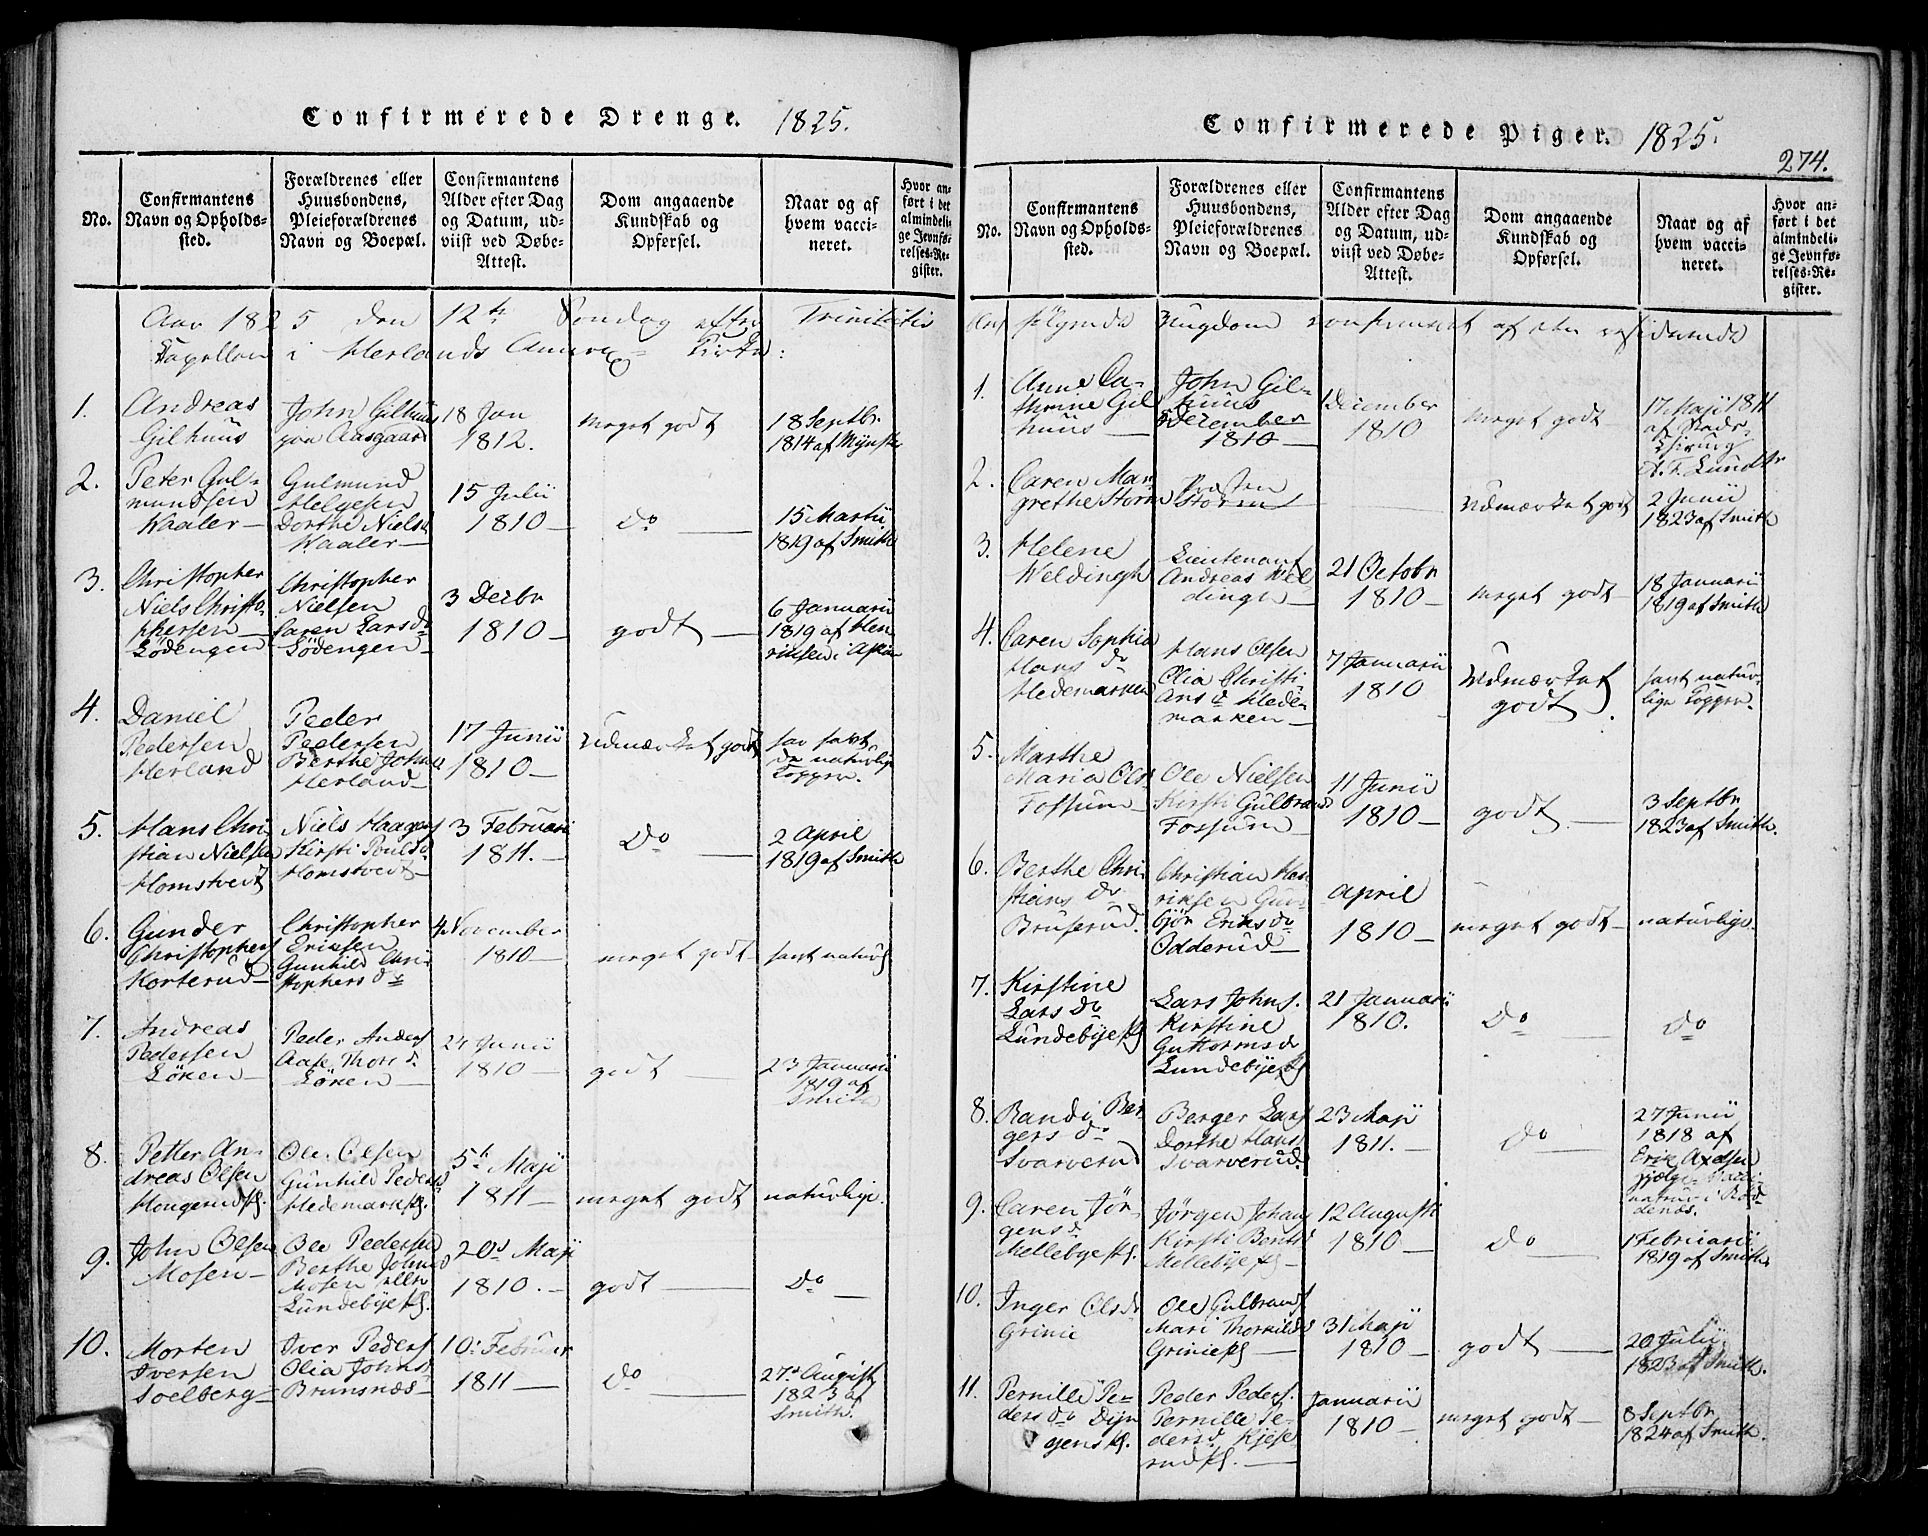 Confirmerede Drenge. 1825.
No.
Confirmantens
Navn og Opholds-
sted.
Forældrenes eller
Huusbondens,
Pleieforældrenes
Navn og Boepæl.
Confirmantens
Alder efter Dag
og Datum, ud-
viist ved Døbe-
Attest.
Dom angaaende
Kundskab og
Opførsel.
Naar og af
hvem vacci-
neret.
Hvor an-
ført i det
almindeli-
ge Jevnfø-
relses-Re-
gister.
Aar 1825 den 12te Søndag efter Trinitatis
Capellan i Herlands Annex Kirke:
1.
Andreas
Gilhuus
John Gilhuus
paa Aasgaard
18 Jan
1812.
meget godt
18 Septbr
1814 af Mynster
2.
Peter Gul-
mundsen
Haaler
Gulmund
Helgesen
Dorthe Nielsd
Haaler
15 Julii
1810
do
15 Martii
1819 af Smith
3.
Christopher
Niels Christo-
phersen
Lödengen
Christopher
Nielsen
Caren Larsd
Lödengen
3 Decbr
1810
godt
6 Januarii
1819 af Hen
riksen i Askim
4.
Daniel
Pedersen
Herland
Peder
Pedersen
Berthe Johnsd
Herland
17 Junii
1810
Udmærket godt
har havt
de naturlige
Kopper.
5.
Hans Chri
stian Nielsen
Homstvedt
Niels Haagens
Kirsti Poulsd
Homstvedt
3 Februari
1811.
do
2 April
1819 af Smith
6.
Gunder
Christophers
Korterud
Christopher
Eriksen
Gunhild Chri
stophersd
4 November
1810
meget godt
havt naturl
7.
Andreas
Pedersen
Löken
Peder Anders
Aase Thorsd
Löken
24 Junii
1810
godt
23 Januarii
1819 af
Smith
8.
Petter An-
dreas Olsen
Hougerud
Ole Olsen
Gunhild Pedersd
Hedemark
5te Maji
1811
meget godt
naturlige.
9.
John Olsen
Mosen
Ole Pedersen
Berthe Johnsd
Mosen eller
Lundebye
20d Maji
1810.
godt
Do
10.
Morten
Iversen
Soelberg
Iver Peders
Olia Johnsd
Brunsnæs
10 Februar
1811
do
27d August
1823 af
Smith.
Confirmerede Piger. 1825.
274.
No.
Confirmantens
Navn og Opholds-
sted.
Forældrenes eller
Huusbondens,
Pleieforældrenes
Navn og Boepæl.
Confirmantens
Alder efter Dag
og Datum, ud-
viist ved Døbe-
Attest.
Dom angaaende
Kundskab og
Opførsel.
Naar og af
hvem vacci-
neret.
Hvor an-
ført i det
almindeli-
ge Jevnfø-
relses-Re-
gister.
følgende Ungdom confirmeret af den residerende
1.
Anne Ca-
thrine Gil
huus
John Gil-
huus
December
1810
1 December
1810
meget godt
17 Maji 1811
af Stads-
Chirurg
A. F. Lundstr
2.
Caren Mar
grethe Storm
Storm
Udmærket godt
2 Junii
1823 af Smith
3.
Helene
Weldingh
Lieutenant
Andreas Wel
dingh
21 Octobr
1810
meget godt
18 Januarii
1819 af Smith
4.
Caren Sophia
Hans do
Hedemarken
Hans Olsen
Olia Christi
Ansd Hede
marken
7 Januarii
1810
Udmærket
godt
havt natur
lige Kopper.
5.
Marthe
Maria Olsd
Fossum
Ole Nielsen
Kirsti Gulbrands
Fossum
11 Junii
1810
godt
3 Septbr
1823 af Smith.
6.
Berthe Chri-
stians do
Bruserud.
Christian Hen
riksen Gun-
bjør Eriks do
Odderud
April
1810
meget godt
naturlige.
7.
Kirstine
Lars do
Lundebye
Lars Johns.
Kirstine
Guttormsd
Lundebye
21 Januarii
1810.
do
do
8.
Randi Ber
gers do
Svarverud
Berger Lars
Dorthe Hans
Svarverud.
23 Maji
1811.
do
27 Junii
1818 af
Erik Axelsen
9.
Caren Jør-
gensd
Mellebye
Jørgen Johan
Kirsti Bentsd
Mellebye
12 Augusti
1810
do
1 Februarii
1819 af Smith
10.
Inger Olsd
Grinie
Ole Gulbrands
Mari Thorkilds
Grinie
31 Maji
1810
godt
20 Julii
1823 af Smith.
11.
Pernille Pe-
ders do Dÿn
gen
Peder Peders.
Pernille Pe-
dersd Kjese
rud
Januarii
1810
meget godt
8 Septbr
1824 af Smith.